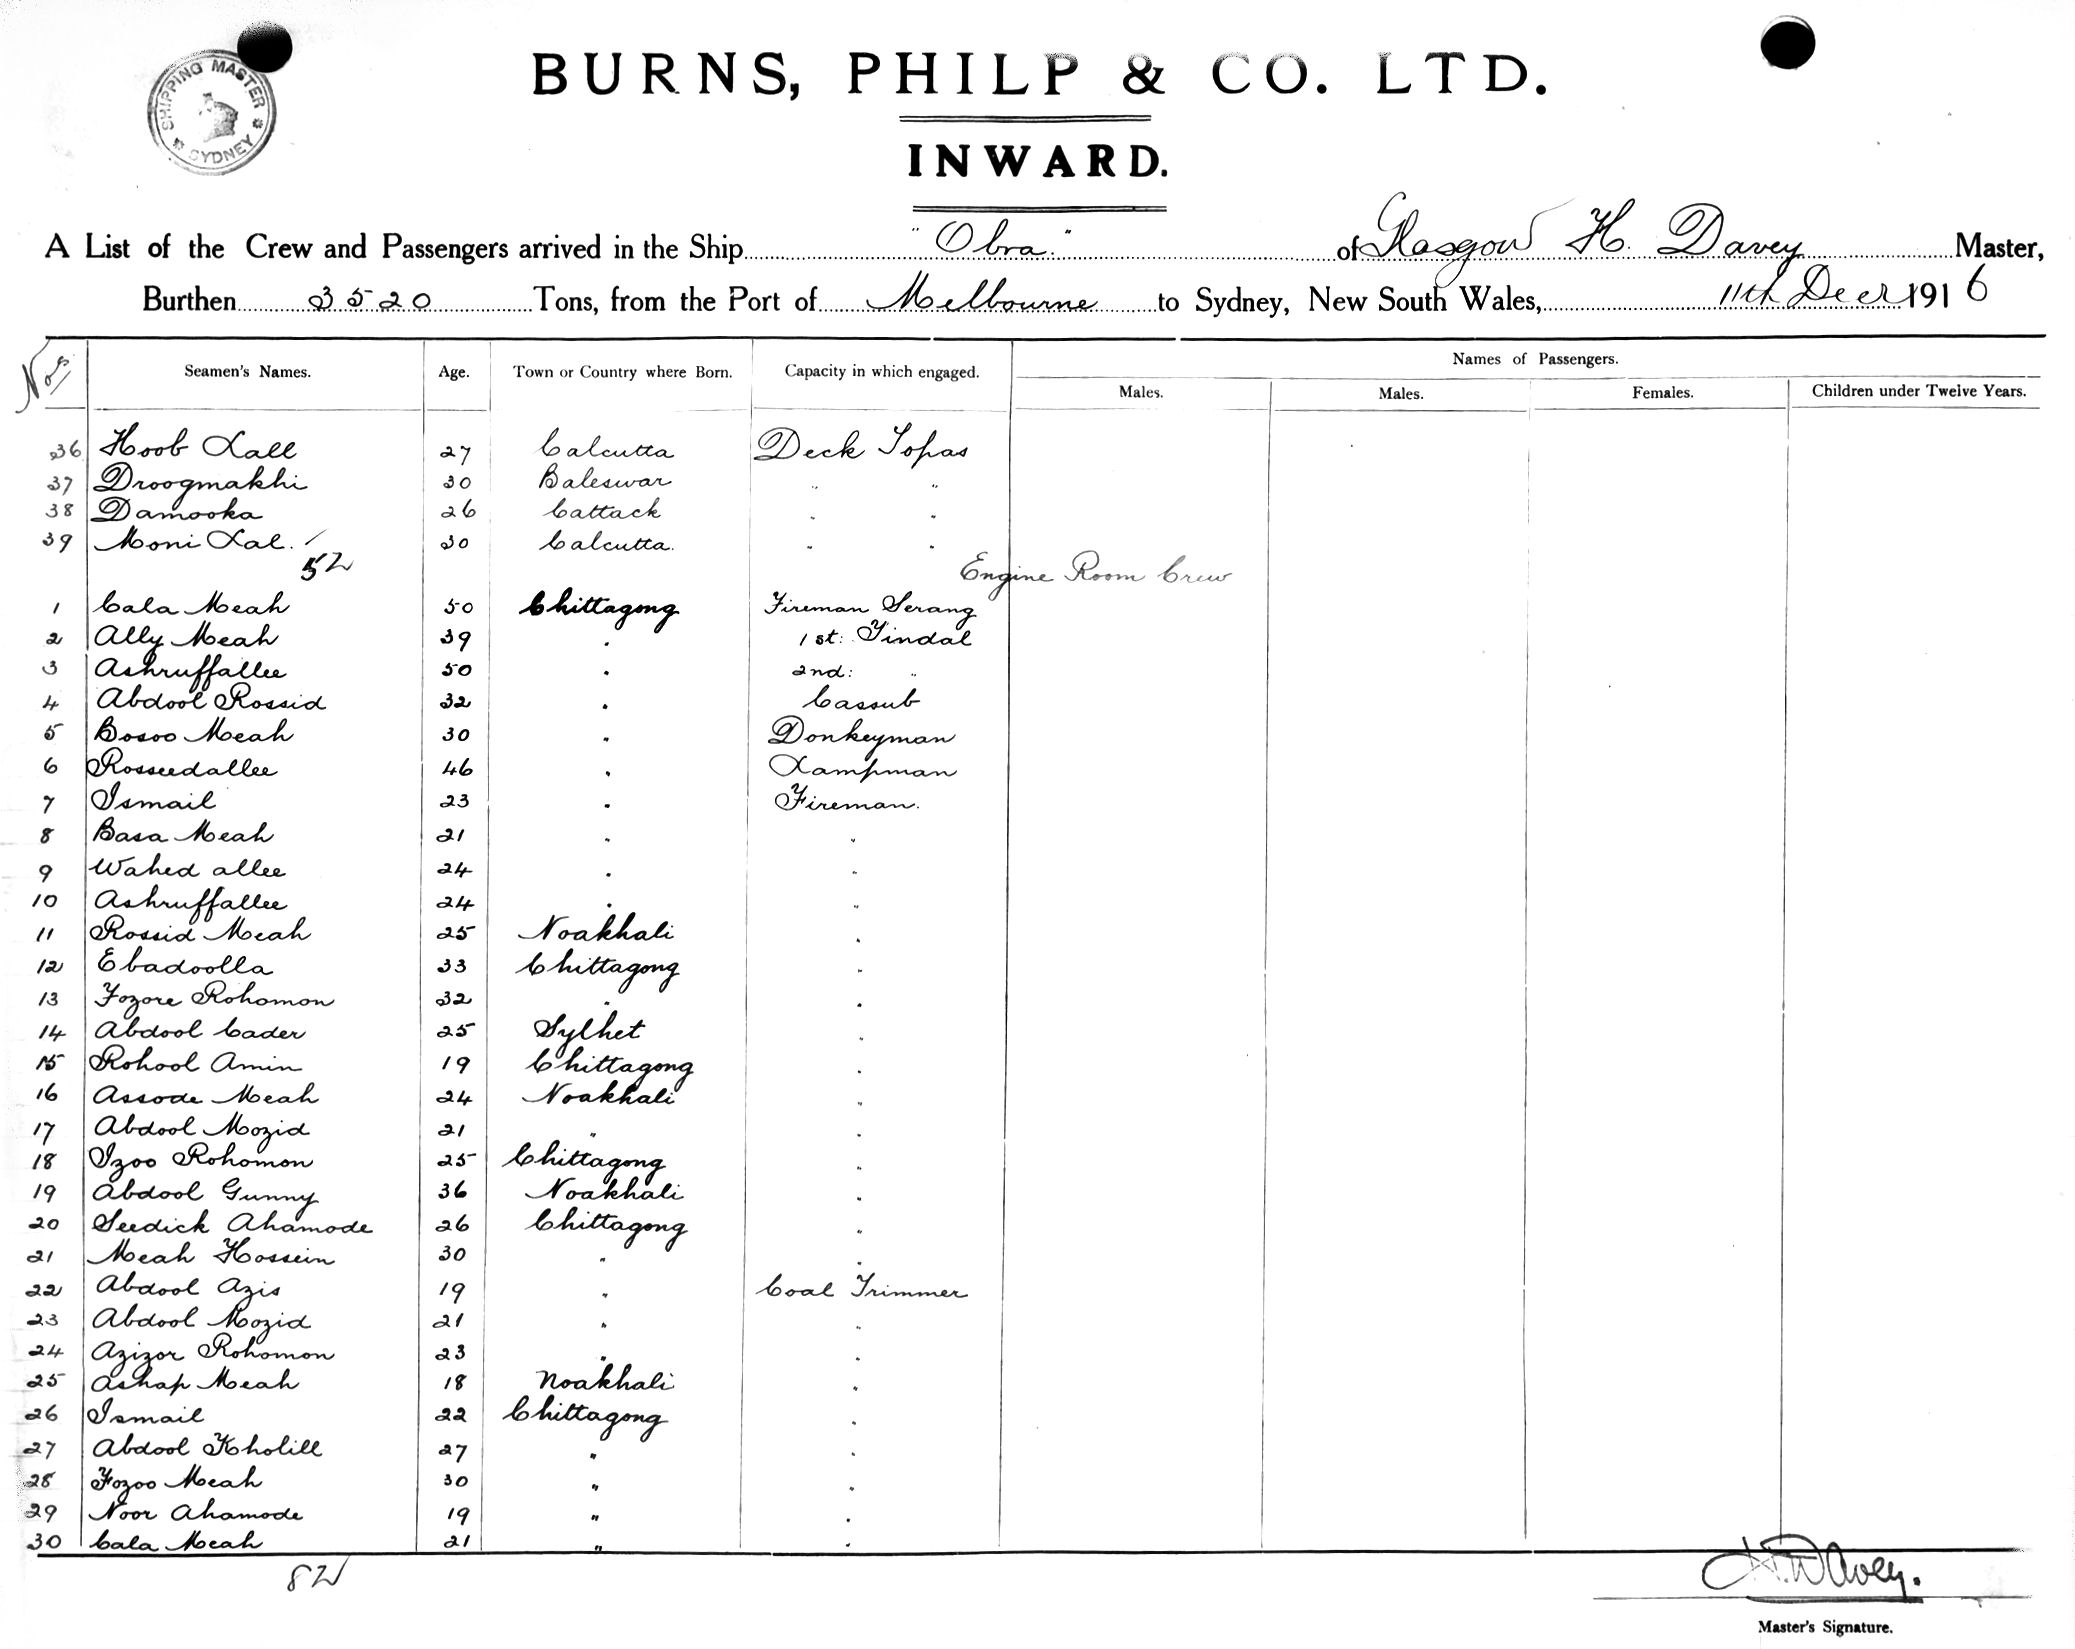 SHIPPING MASTER
SYDNEY
BURNS, PHILP & CO. LTD.
INWARD.
A List of the Crew and Passengers arrived in the Ship "Obra." of Glasgow H. Davey Master,
Burthen 3520 Tons, from the Port of Melbourne to Sydney, New South Wales, 11th Decr 1916
Nos Seamen's Names. Age. Town or Country where Born. Capacity in which engaged. Names of Passengers.
Males. Males. Females. Children under Twelve Years.
36 Hoob Lall 27 Calcutta Deck Topas
37 Droogmakhi 30 Baleswar " "
38 Damooka 26 Cattack " "
39 Moni Lal. 30 Calcutta. " "
52
Engine Room Crew
1 Cala Meah 50 Chittagong Fireman Serang
2 Ally Meah 39 " 1st: Tindal
3 Ashruffallee 50 " 2nd: "
4 Abdool Rossid 32 " Cassub
5 Bosoo Meah 30 " Donkeyman
6 Rosseedallee 46 " Lampman
7 Ismail 23 " Fireman.
8 Basa Meah 21 " "
9 Wahed allee 24 " "
10 Ashruffallee 24 " "
11 Rossid Meah 25 Noakhali "
12 Ebadoolla 33 Chittagong "
13 Fozore Rohomon 32 " "
14 Abdool Cader 25 Sylhet "
15 Rohool Amin 19 Chittagong "
16 Assode Meah 24 Noakhali "
17 Abdool Mozid 21 " "
18 Izoo Rohomon 25 Chittagong "
19 Abdool Gunny 36 Noakhali "
20 Seedick Ahamode 26 Chittagong "
21 Meah Hossein 30 " "
22 Abdool Azis 19 " Coal Trimmer
23 Abdool Mozid 21 " "
24 Azizor Rohomon 23 " "
25 Ashap Meah 18 Noakhali "
26 Ismail 22 Chittagong "
27 Abdool Kholill 27 " "
28 Fozoo Meah 30 " "
29 Noor Ahamode 19 " "
30 Cala Meah 21 " "
82
H. Davey.
Master's Signature.